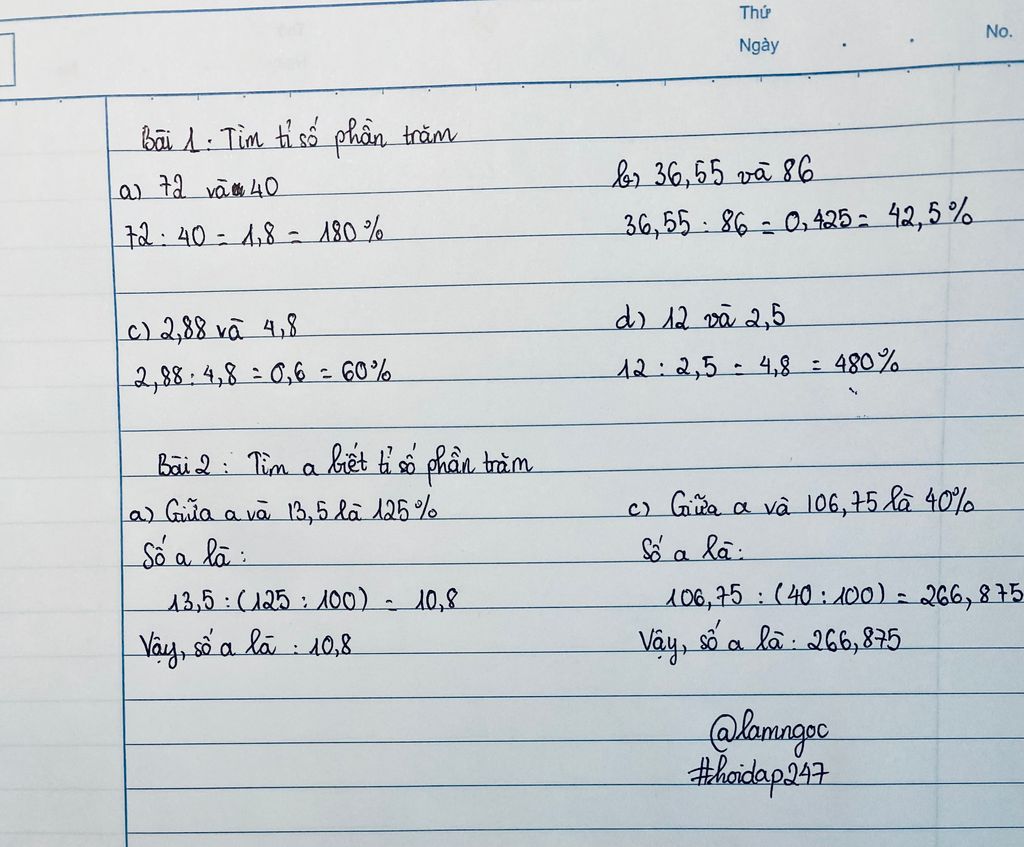 Thứ
Ngày . . No.
Bài 1 : Tìm tỉ số phần trăm
a) 72 và 40
72 : 40 = 1,8 = 180%
b) 36,55 và 86
36,55 : 86 = 0,425 = 42,5%
c) 2,88 và 4,8
2,88 : 4,8 = 0,6 = 60%
d) 12 và 2,5
12 : 2,5 = 4,8 = 480%
Bài 2 : Tìm a biết tỉ số phần trăm
a) Giữa a và 13,5 là 125%
Số a là :
13,5 : (125 : 100) = 10,8
Vậy, số a là : 10,8
c) Giữa a và 106,75 là 40%
Số a là :
106,75 : (40 : 100) = 266,875
Vậy, số a là : 266,875
@lamngoc
#hoidap247